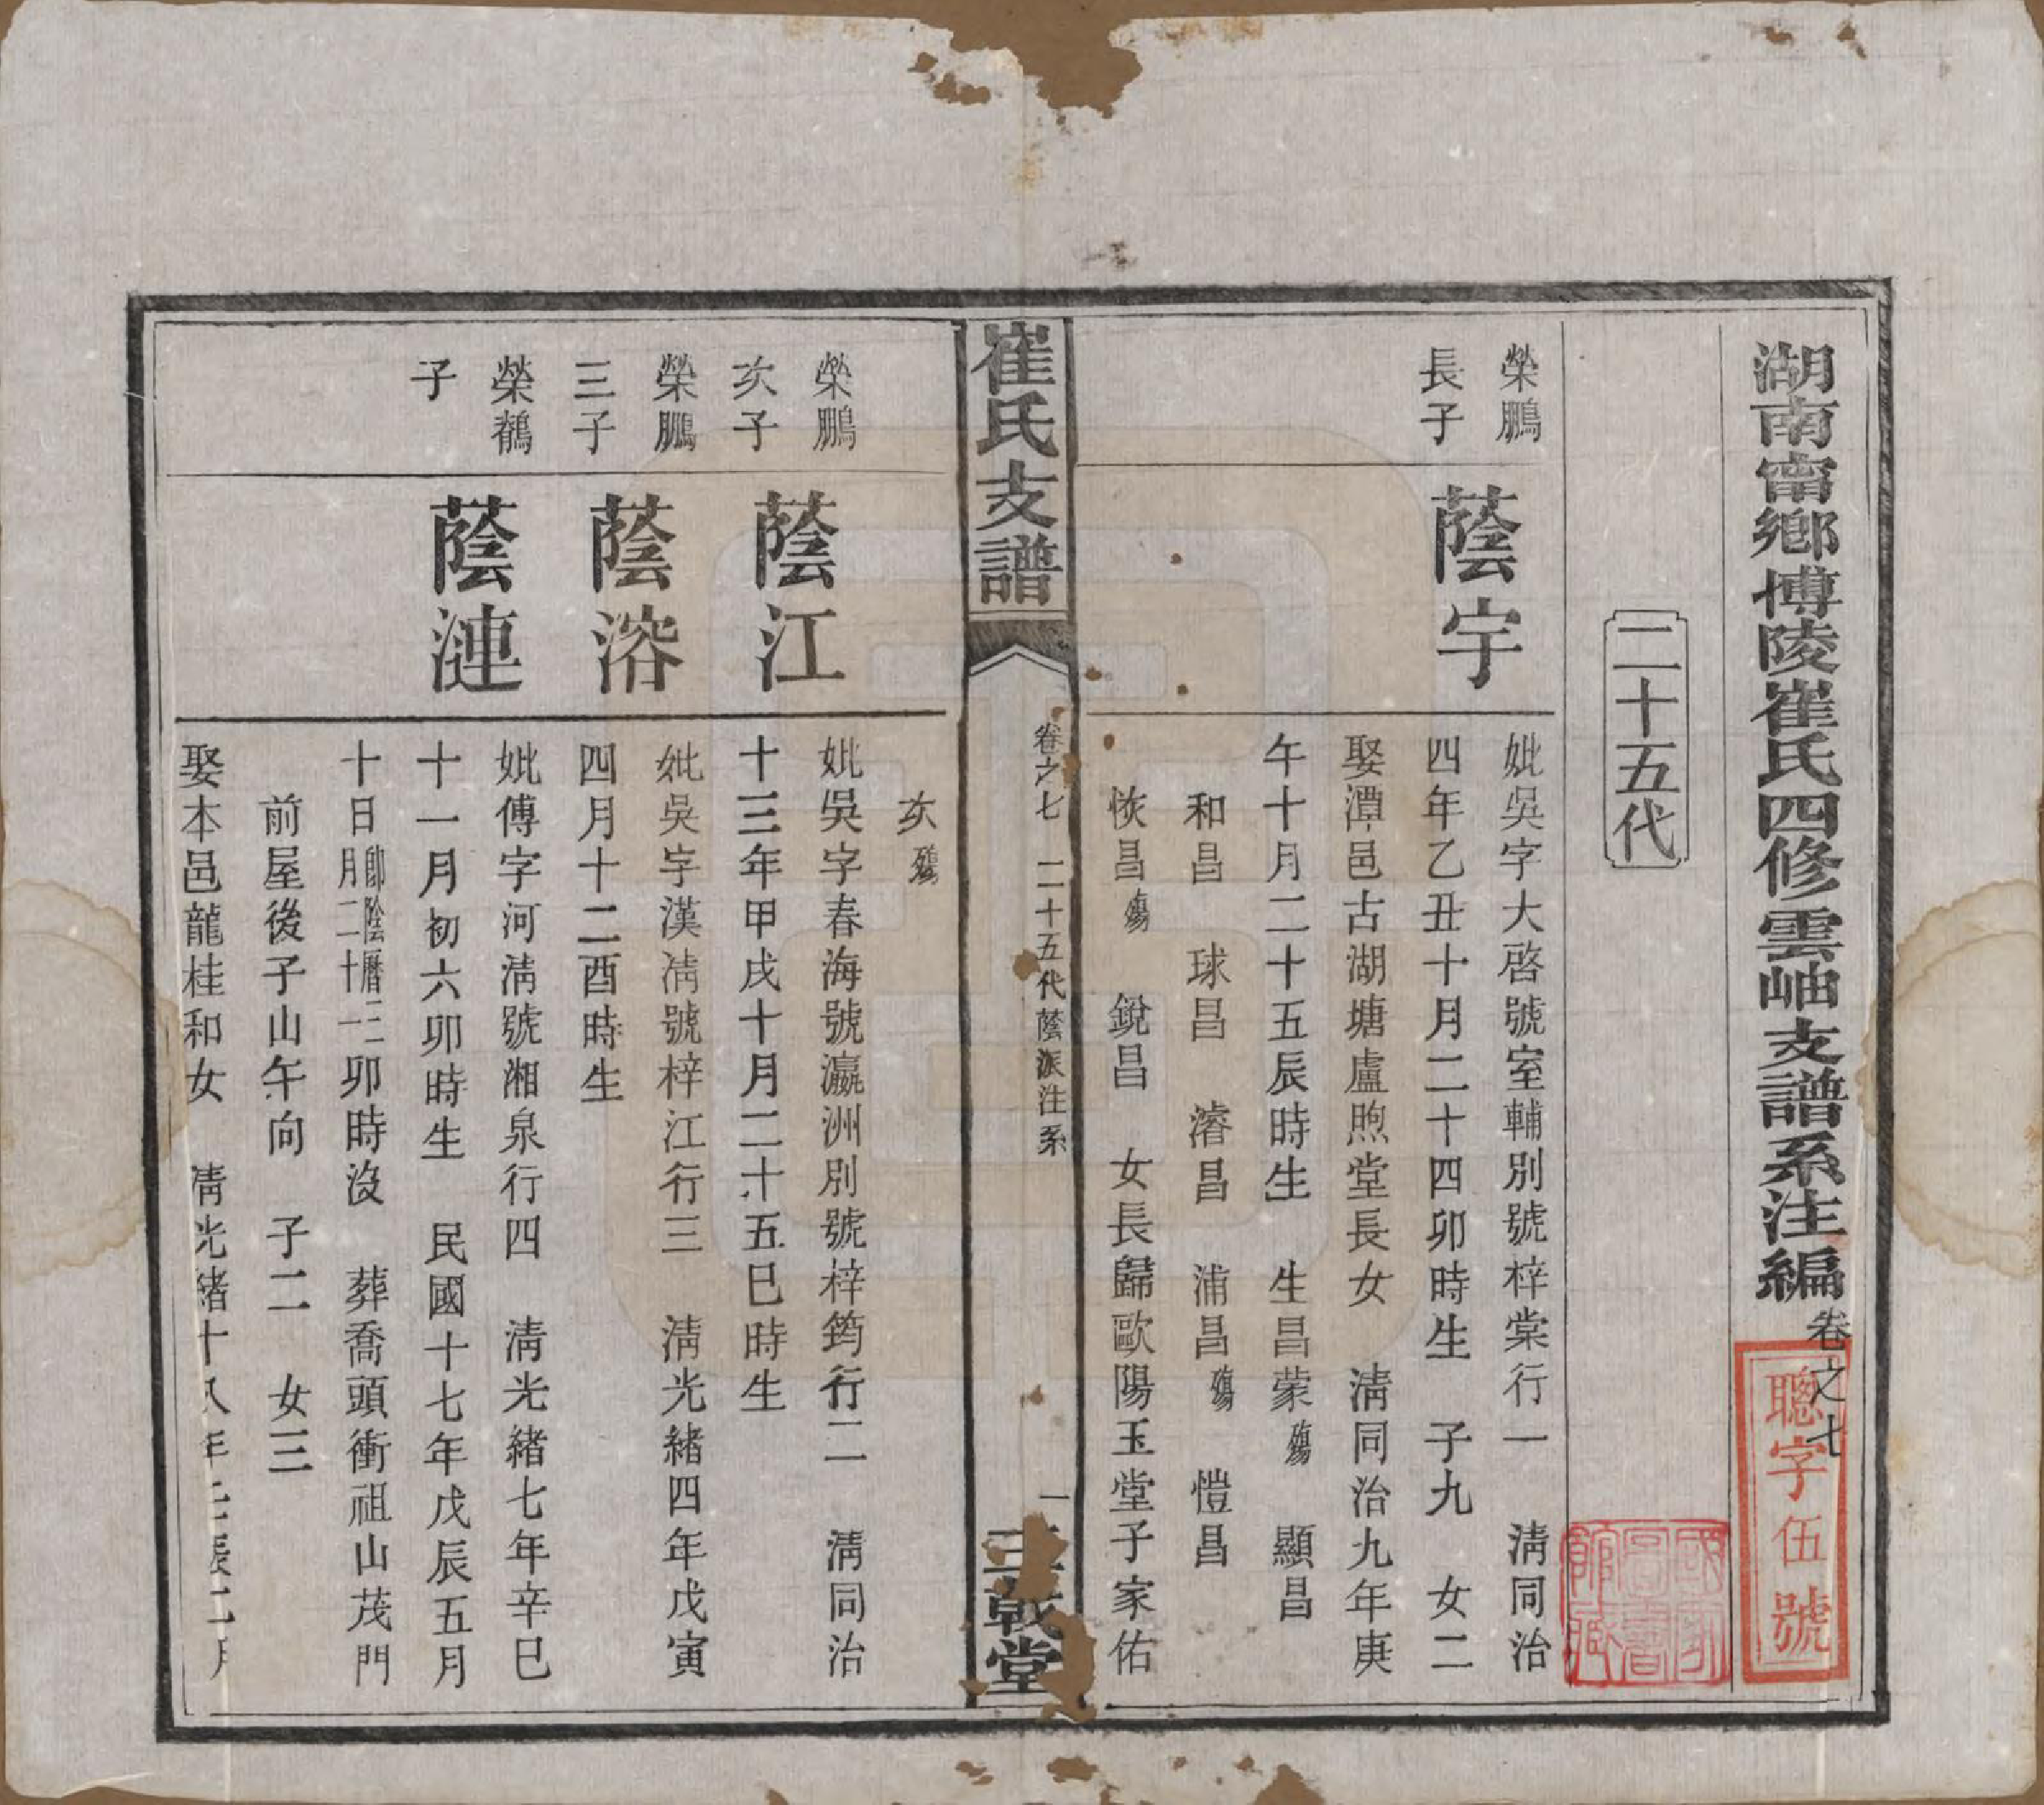 湖南甯鄉博陵崔氏四修雲岫支譜系注編卷之七
聰字伍號
國家圖書館藏
二十五代
榮鵬
長子
蔭宇
妣吳字大啓號室輔別號梓棠行一 淸同治
四年乙丑十月二十四卯時生 子九 女二
娶潭邑古湖塘盧煦堂長女 淸同治九年庚
午十月二十五辰時生 生昌蒙殤 顯昌
和昌 球昌 濬昌 浦昌殤 愷昌
恢昌殤 銳昌 女長歸歐陽玉堂子家佑
崔氏支譜
卷之七 二十五代蔭派注系
一
三戟堂
次殤
榮鵬
次子
蔭江
妣吳字春海號瀛洲別號梓筠行二 淸同治
十三年甲戌十月二十五巳時生
榮鵬
三子
蔭溶
妣吳字漢淸號梓江行三 淸光緖四年戊寅
四月十二酉時生
榮鶺
子
蔭漣
妣傅字河淸號湘泉行四 淸光緖七年辛巳
十一月初六卯時生 民國十七年戊辰五月
十日卽陰曆三月二十一卯時沒 葬喬頭衝祖山茂門
前屋後子山午向 子二 女三
娶本邑龍桂和女 淸光緖十八年壬辰二月